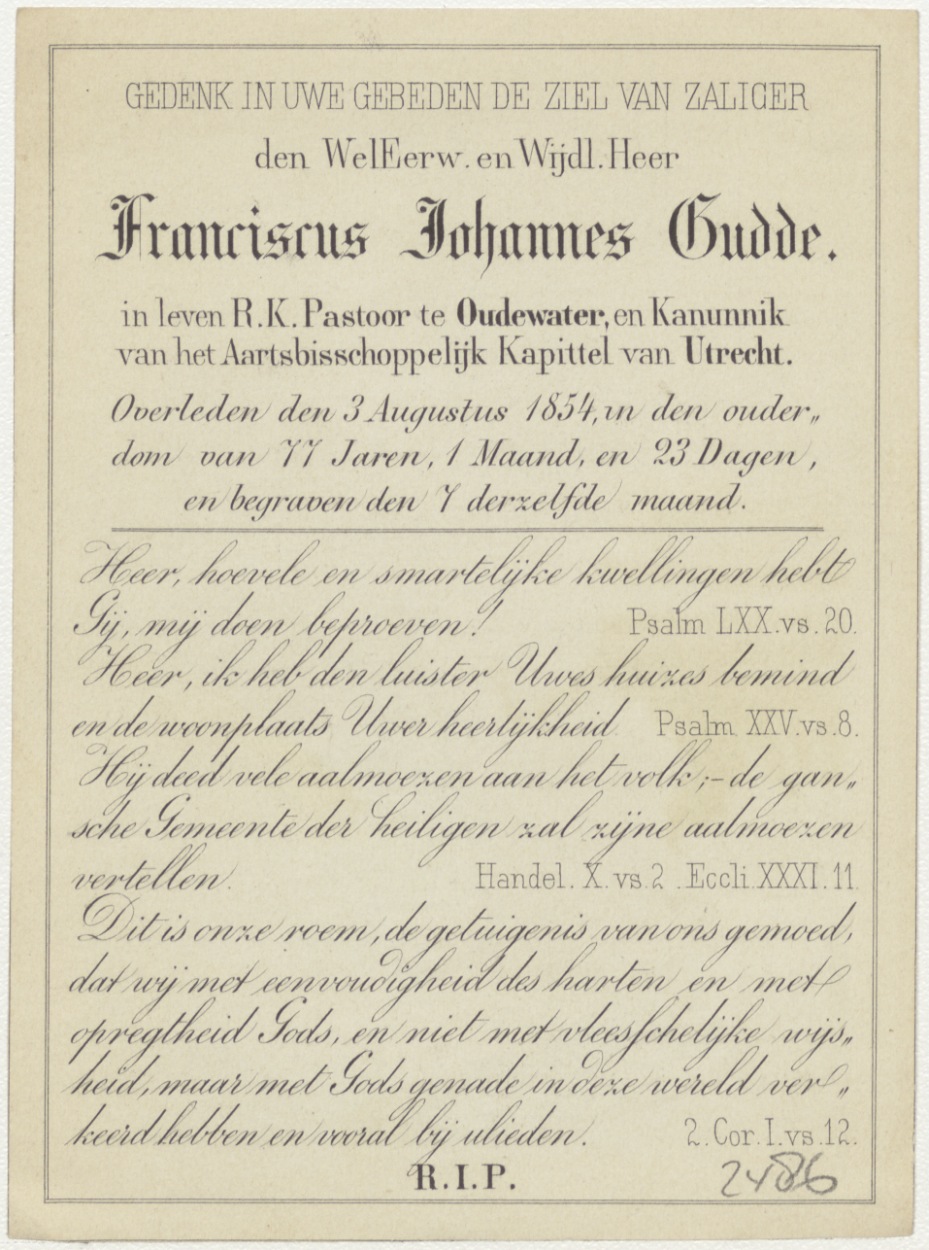 GEDENK IN UWE GEBEDEN DE ZIEL VAN ZALIGER
den WelEerw. en Wijdl. Heer
Franciscus Johannes Gudde.
in leven R.K. Pastoor te Oudewater, en Kanunnik
van het Aartsbisschoppelijk Kapittel van Utrecht.
Overleden den 3 Augustus 1854, in den ouder„
dom van 77 Jaren, 1 Maand, en 23 Dagen,
en begraven den 7 derzelfde maand.
Heer, hoevele en smartelijke kwellingen hebt
Gij, mij doen beproeven! Psalm LXX. vs. 20.
Heer, ik heb den luister Uwes huizes bemind
en de woonplaats Uwer heerlijkheid. Psalm XXV. vs. 8.
Hij deed vele aalmoezen aan het volk;- de gan„
sche Gemeente der heiligen zal zijne aalmoezen
vertellen. Handel. X. vs. 2. Eccli. XXXI. 11.
Dit is onze roem, de getuigenis van ons gemoed,
dat wij met eenvoudigheid des harten en met
opregtheid Gods, en niet met vleesschelijke wijs„
heid, maar met Gods genade in deze wereld ver„
keerd hebben en vooral bij ulieden. 2. Cor. I. vs. 12.
R.I.P.
2486